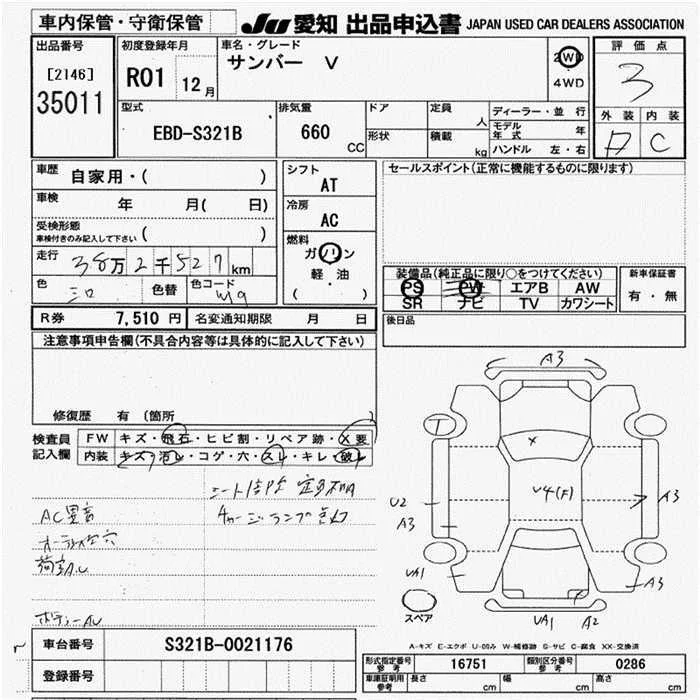 車内保管・守衛保管
JU 愛知 出品申込書 JAPAN USED CAR DEALERS ASSOCIATION
出品番号
[2146]
35011
初度登録年月
R01 12月
車名・グレード
サンバー V
2WD
4WD
評価点
3
外装 内装
C
型式
EBD-S321B
排気量
660 CC
ドア
形状
定員 人
積載 kg
ディーラー・並行
モデル年式 年
ハンドル 左・右
車歴
自家用・( )
車検
年 月( 日)
受検形態
車検付きのみ記入して下さい ( )
走行
38万2千527km
色
シロ
色替
色コード
W9
シフト
AT
冷房
AC
燃料
ガソリン
軽・油
( )
セールスポイント(正常に機能するものに限ります)
装備品(純正品に限り○をつけてください)
PS PW エアB AW
SR ナビ TV カワシート
新車保証書
有・無
後日品
R券 7,510 円 名変通知期限 月 日
注意事項申告欄(不具合内容等は具体的に記入して下さい)
修復歴 有 (箇所 )
検査員記入欄
FW キズ・飛石・ヒビ割・リペア跡・X要
内装 キズ・汚レ・コゲ・穴・スレ・キレ・破レ
チャージランプ点灯
AC異音
オーディオ穴
荷室A.U
ボディーAU
A3
T
U4(F)
U2
A3
A3
UA1
A3
スペア
UA1 A2
A-キズ E-エクボ U-凹み W-補修跡 S-サビ C-腐食 XX-交換済
車台番号 S321B-0021176
登録番号
形式指定番号参考 16751
類別区分番号参考 0286
車庫証明用参考 長さ cm 幅 cm 高さ cm